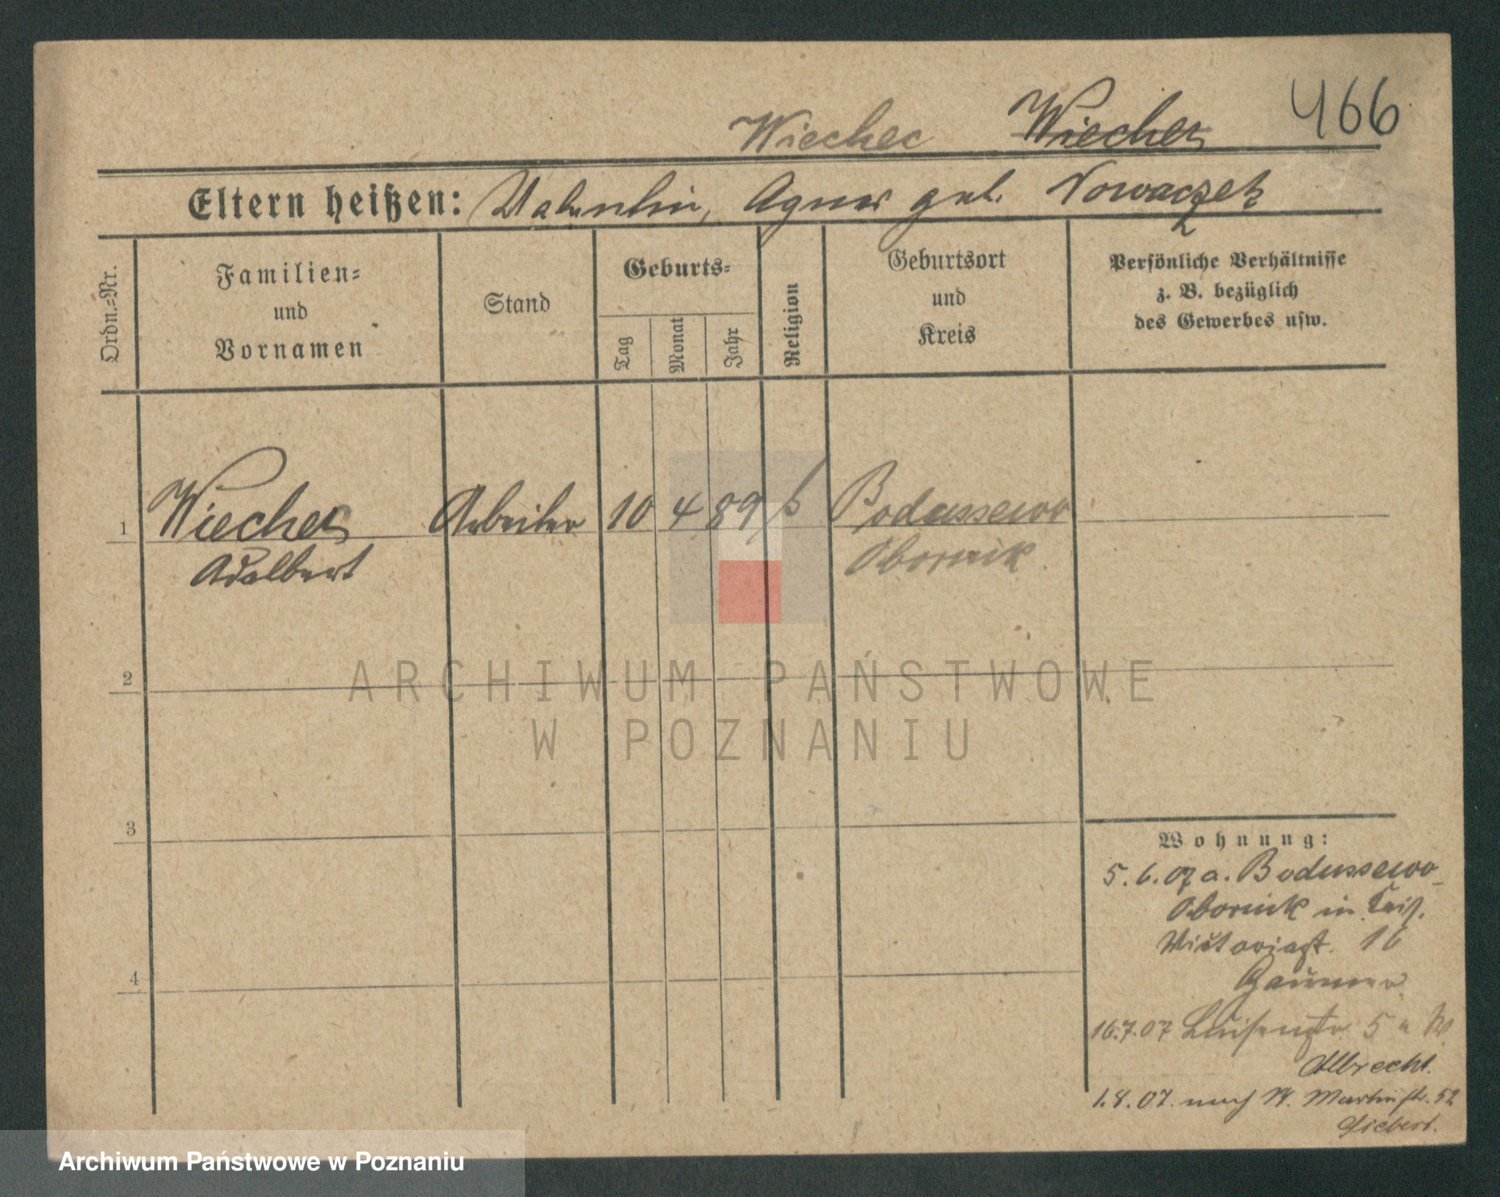 466
Wiechec Wiechez
Eltern heißen: Valentin, Agnes geb. Nowaczek
Ordn.-Nr.
Familien-
und
Vornamen
Stand
Geburts-
Tag
Monat
Jahr
Religion
Geburtsort
und
Kreis
Persönliche Verhältnisse
z. B. bezüglich
des Gewerbes usw.
1 Wiechec Arbeiter 10 4 89 k Bodussewo
Adalbert Obornik.
2
3
4
Wohnung:
5.6.07 a. Bodussewo
Obornik in
Viktoriast. 16
16.7.07 Luisenstr. 5 a
Albrecht.
1.8.07. nach St. Martinstr. 52
Siebert.
ARCHIWUM PAŃSTWOWE
W POZNANIU
Archiwum Państwowe w Poznaniu